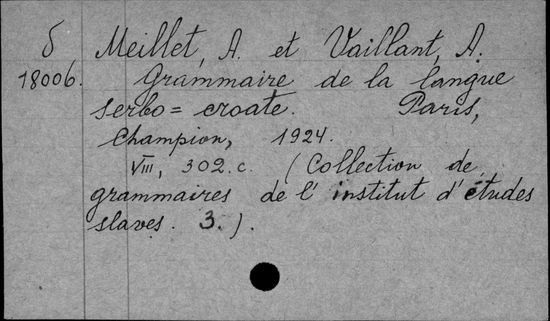 δ Meillet, A. et Vaillant, A.
18006. Grammaire de la langue
serbo=croate. Paris,
Champion, 1924.
VIII, 302.c. (Collection de
grammaires de l'institut d'études
slaves. 3.).